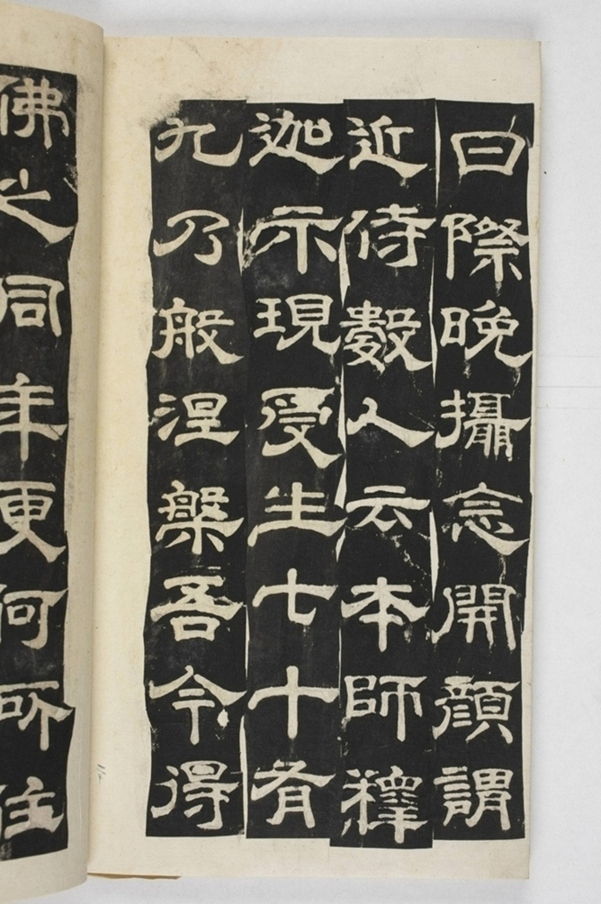 日際晚攝念開顏謂
近侍數人云本師釋
迦示現受生七十有
九乃般涅槃吾今得
佛之同年更何所住